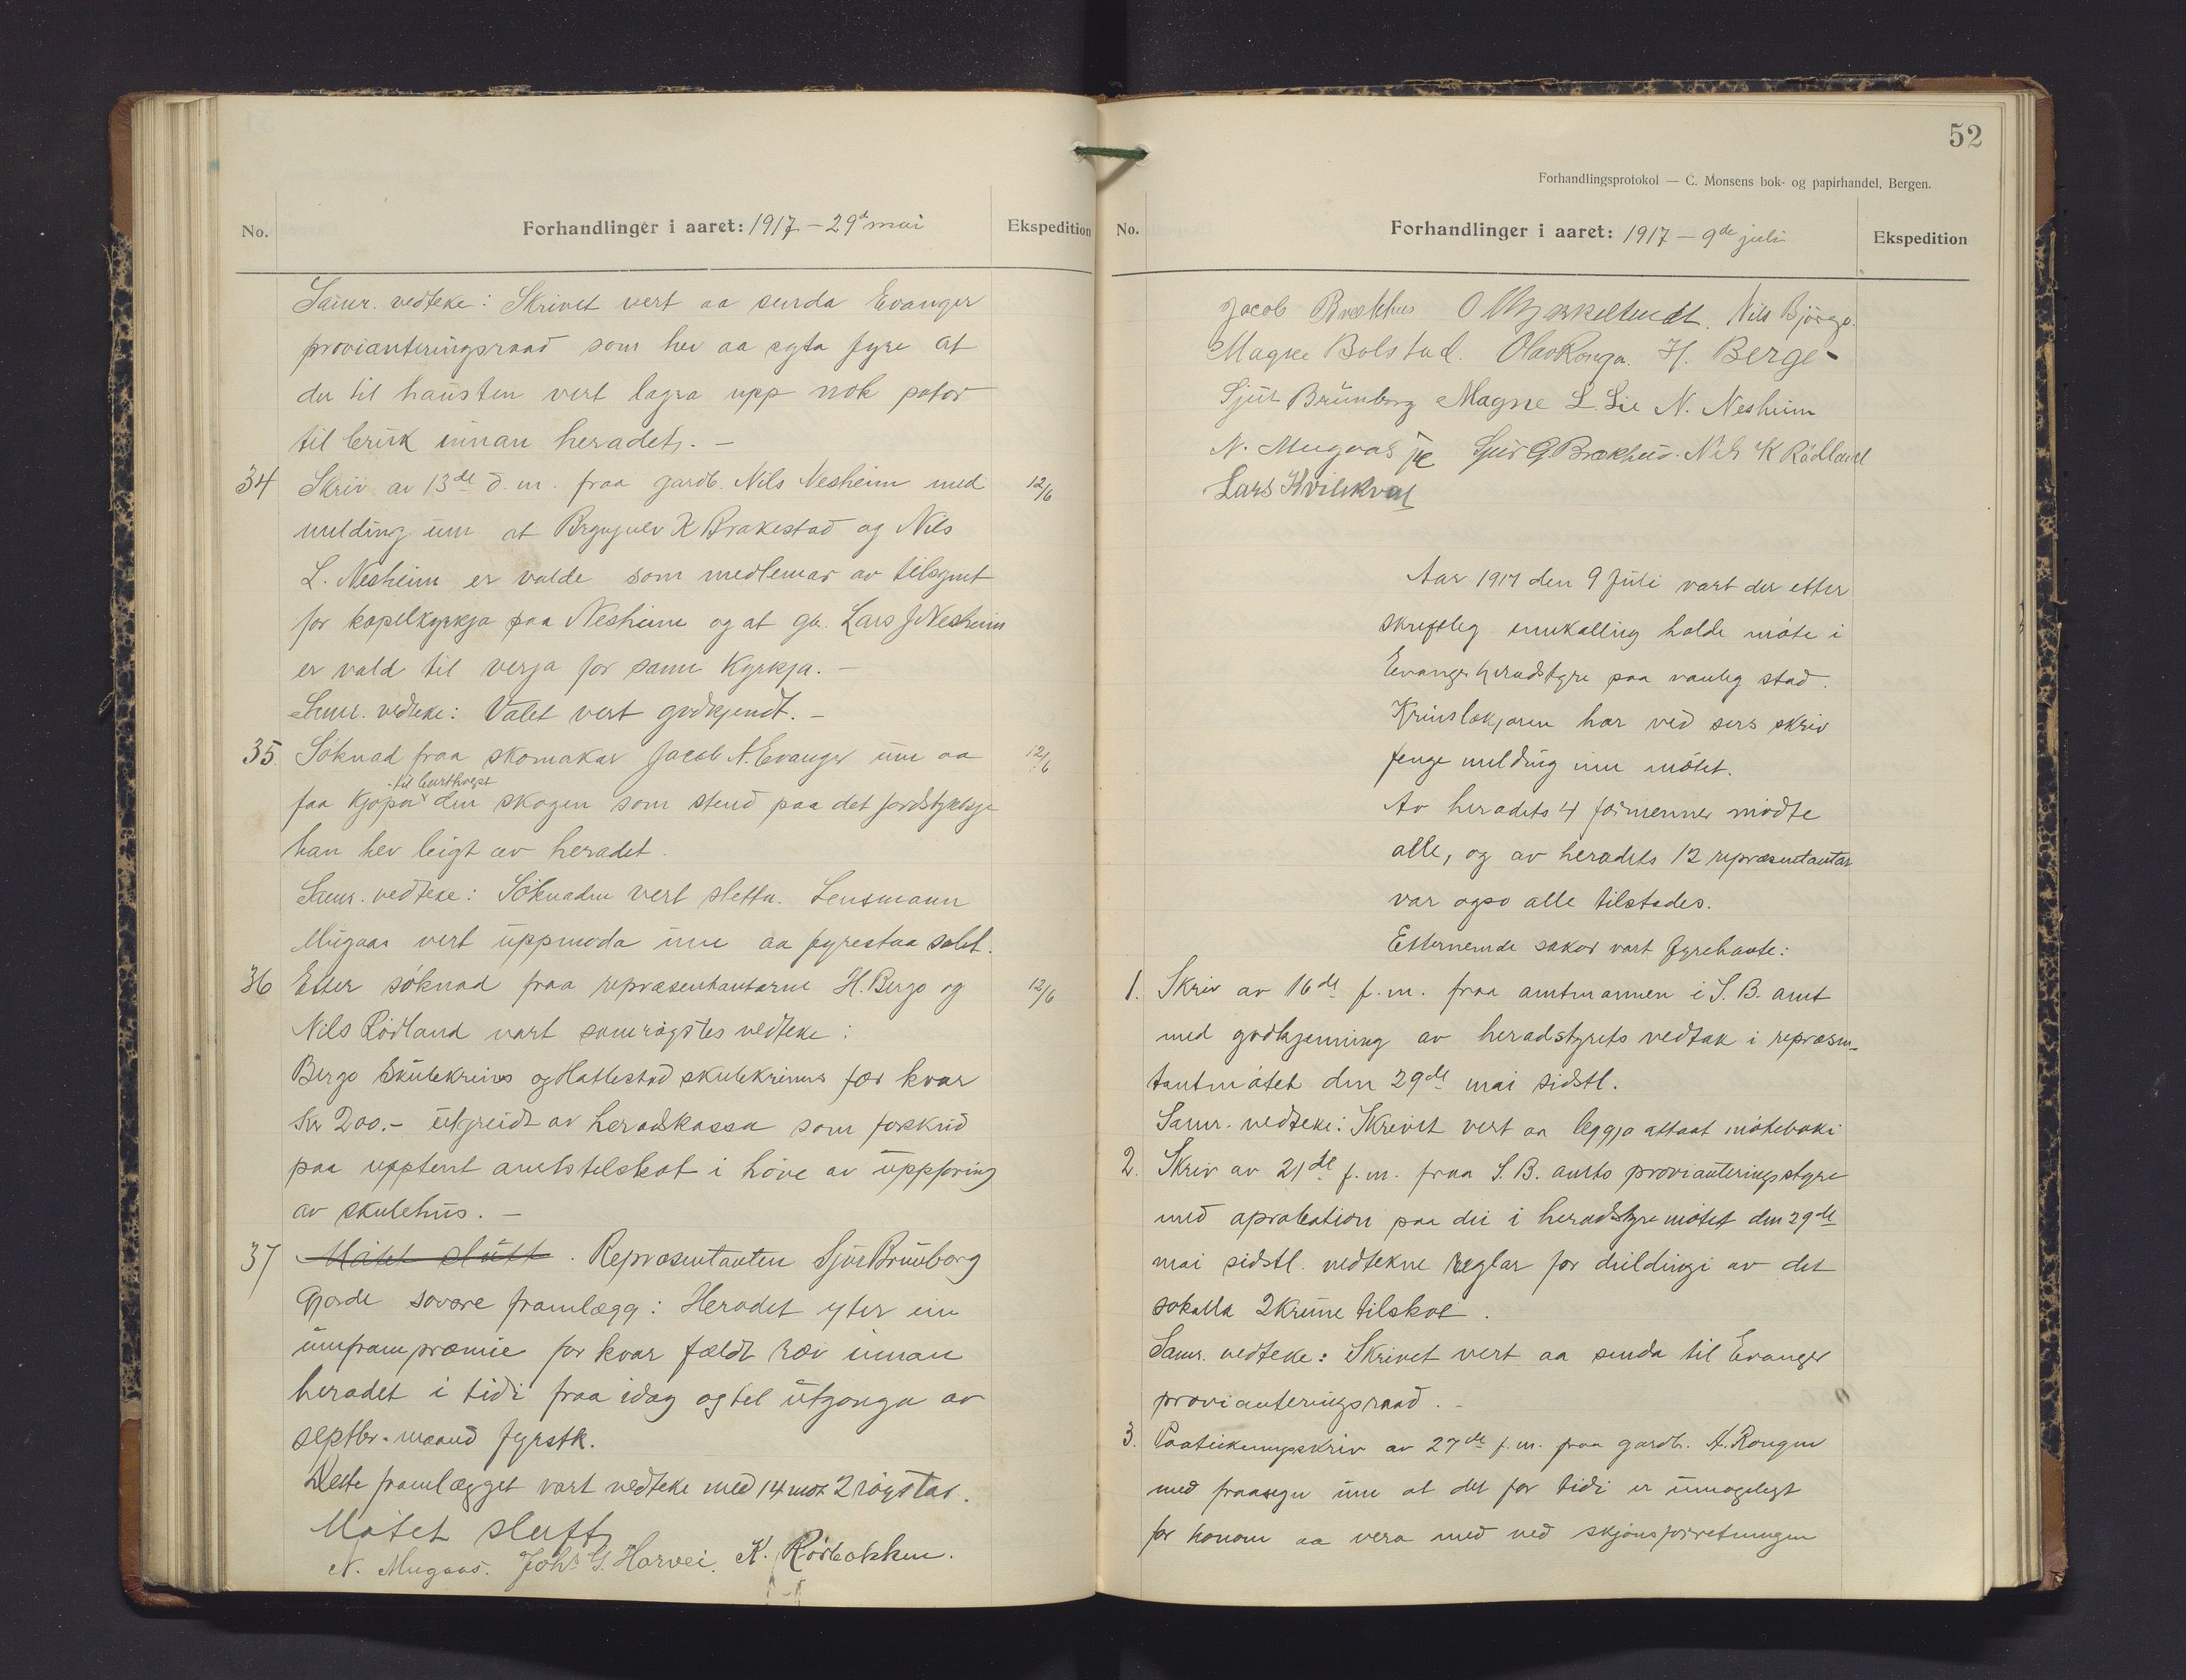 No.
Forhandlinger i aaret: 1917 - 29d mai
Ekspedition
Samr. vedteke: Skrivet vert aa senda Evanger
provianteringsraad som hev aa syta fyre at
der til hausten vert lagra upp nok potor
til bruk innan heradet. -
34 Skriv av 13de d.m. fraa gardb. Nils Nesheim med 12/6
melding um at Brynjulv K Brakestad og Nils
L. Nesheim er valde som medlemar av tilsynet
for kapelkyrkja paa Nesheim og at gb. Lars J Nesheim
er vald til verja for same Kyrkja. -
Samr. vedteke: Valet vert godkjendt. -
35. Søknad fraa skomakar Jacob A. Evanger um aa 12/6
til burthogst
faa kjøpa den skogen som stend paa det jordstykkje
han hev leigt av heradet.
Samr. vedteke: Søknaden vert sletta. Lensmann
Mugaas vert uppmoda um aa fyrestaa salet.
36 Etter søknad fraa repræsentantarne H. Berge og 12/6
Nils Rødland vart samrøystes vedteke:
Berge Skulekrins og Hallestad skulekrins fær kvar
Kr 200.- utgreidt av heradskassa som forskud
paa upptent amtstilskot i høve av uppføring
av skulehus. -
37 Møtet slutt. Repræsentanten Sjur Brunborg
gjorde sovore framlegg: Heradet yter ein
umframpræmie for kvar fældt ræv innan
heradet i tidi fraa idag og til utganga av
septbr. maanad fyrstk.
Dette framlegget vart vedteke med 14 mot 2 røystar.
Møtet slutt
N. Mugaas. Johs G. Horvei. K. Rørbakken.
52
Forhandlingsprotokol — C. Monsens bok- og papirhandel, Bergen.
No.
Forhandlinger i aaret: 1917 - 9de juli
Ekspedition
Jacob Brækhus Nils Bjørge.
Magne Bolstad. Olav Ronge. H. Berge-
Sjur Brunborg Magne L. Lie N. Nesheim
N. Mugaas Sjur G. Brækhus. Nils K Rødland
Lars Kvilekval
Aar 1917 den 9 Juli vart der etter
skrifteleg innkalling halde møte i
Evanger heradstyre paa vanleg stad.
Krinslækjaren har ved sers skriv
fenge melding um møtet.
Av heradets 4 formenner møtte
alle, og av heradets 12 repræsentantar
var ogso alle tilstades.
Etternemde sakor vart fyrehavte:
1. Skriv av 16de f.m. fraa amtmannen i S.B. amt
med godkjenning av heradstyrets vedtak i repræsen-
tantmøtet den 29de mai sidstl.
Samr. vedteke: Skrivet vert aa leggja attaat møteboki
2. Skriv av 21de f.m. fraa S.B. amts provianteringsstyre
med aprobation paa dei i heradstyremøtet den 29de
mai sidstl. vedtekne reglar for deildingi av det
sokalla 2 krune tilskot.
Samr. vedteke: Skrivet vert aa senda til Evanger
provianteringsraad. -
3. Paateikningsskriv av 27de f.m. fraa gardb. A. Rongen
med fraasegn um at det for tidi er umogelegt
for honom aa vera med ved skjønsforretningen